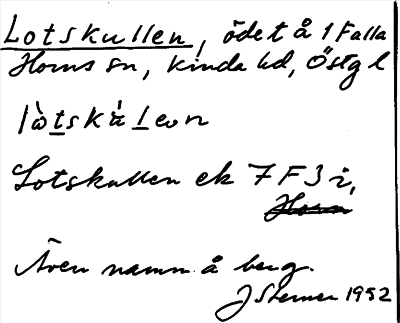 Lotskullen, öde t å 1 Falla
Horns sn, Kinda hd, Östg l
Lotskullen ek 7 F 3 i,
Horn
Även namn å berg.
J Sterner 1952